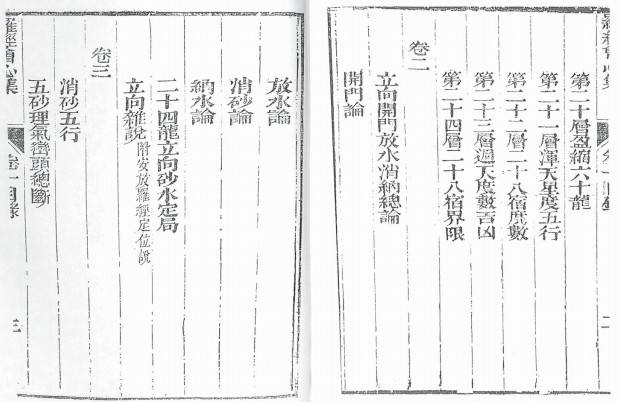 第二十層盈縮六十龍
第二十一層渾天星度五行
第二十二層二十八宿度數
第二十三層週天度數吉凶
第二十四層二十八宿界限
卷二
立向開門放水消納總論
開門論
二
放水論
消砂論
納水論
二十四龍立向砂水定局
立向雜說附安放羅經定位說
卷三
消砂五行
五砂理氣巒頭總斷
羅經會心集
卷一目錄
三